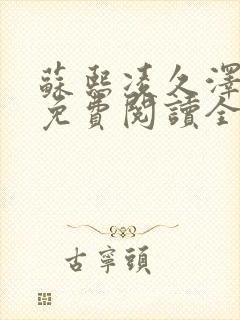 蘇熙凌久澤
免費閱讀全
古寧頭